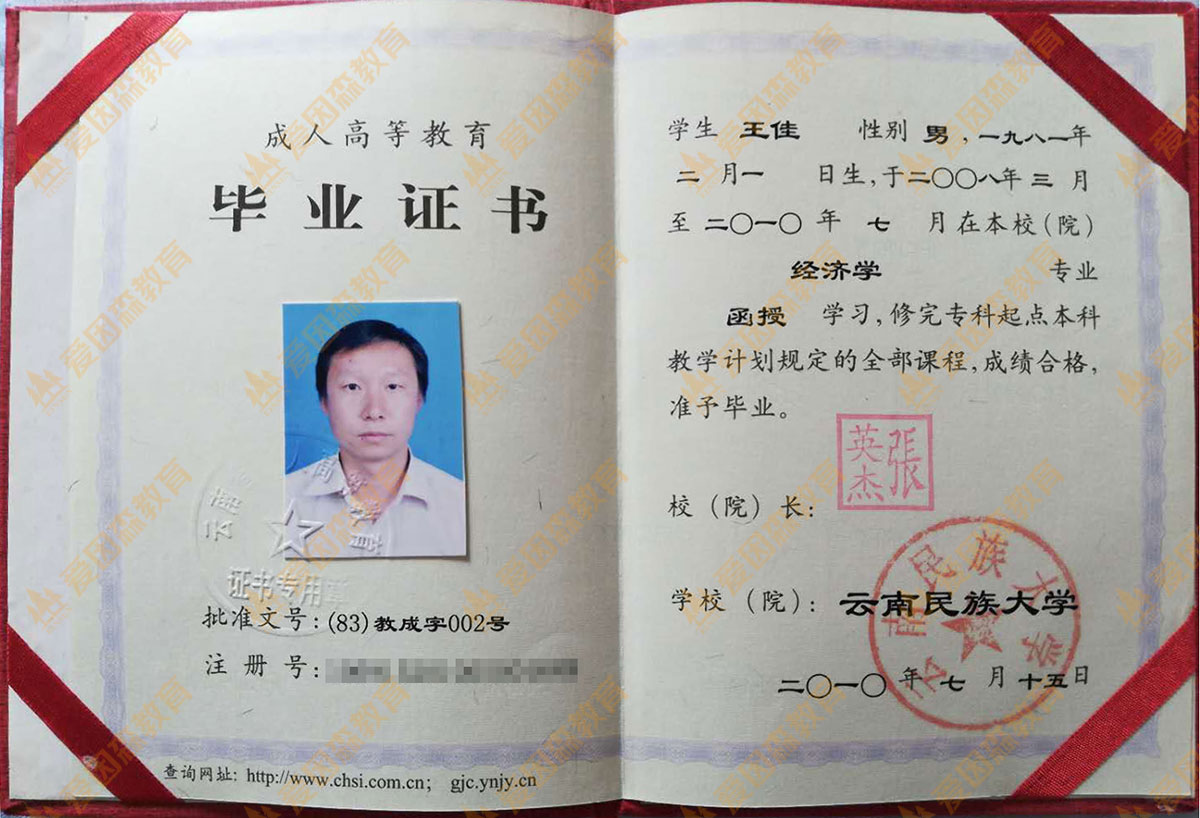 成人高等教育
毕业证书
云南
高等教育
证书专用章
批准文号:(83)教成字002号
注册号:
查询网址: http://www.chsi.com.cn; gjc.ynjy.cn
学生 王佳 性别 男,一九八一年
二 月一 日生,于二〇〇八年 三 月
至 二〇一〇 年 七 月在本校(院)
经济学 专业
函授 学习,修完专科起点本科
教学计划规定的全部课程,成绩合格,
准予毕业。
張英杰
校(院)长:
学校(院): 云南民族大学
云南民族大学
二〇一〇 年 七 月 十五日
爱因森教育